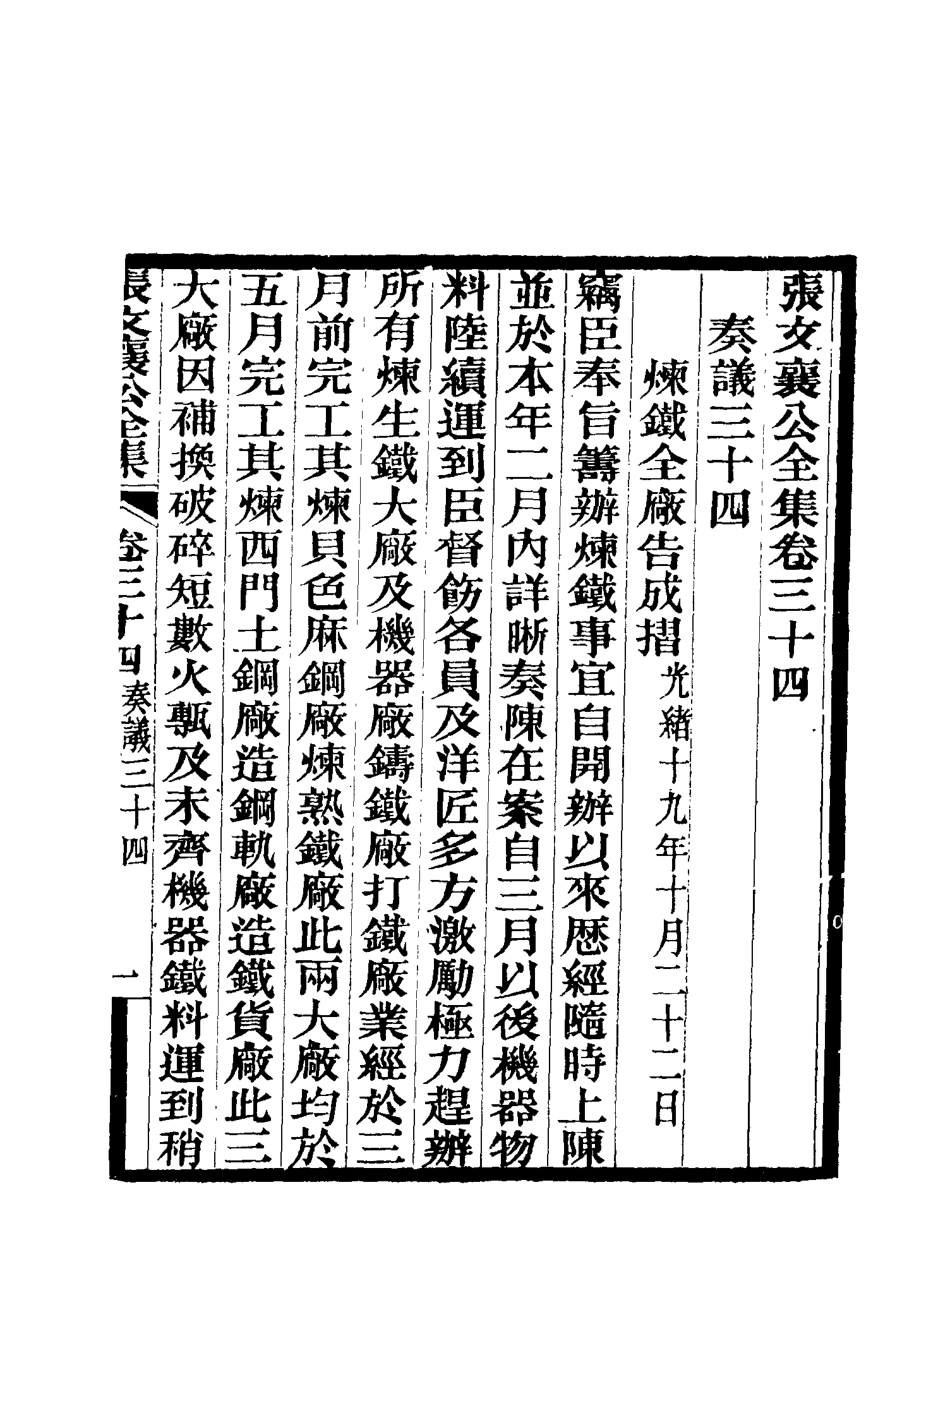 張文襄公全集卷三十四
奏議三十四
煉鐵全廠告成摺光緒十九年十月二十二日
竊臣奉旨籌辦煉鐵事宜自開辦以來歷經隨時上陳
並於本年二月內詳晰奏陳在案自三月以後機器物
料陸續運到臣督飭各員及洋匠多方激勵極力趕辦
所有煉生鐵大廠及機器廠鑄鐵廠打鐵廠業經於三
月前完工其煉貝色麻鋼廠煉熟鐵廠此兩大廠均於
五月完工其煉西門士鋼廠造鋼軌廠造鐵貨廠此三
大廠因補換破碎短數火甎及未齊機器鐵料運到稍
張文襄公全集 卷三十四 奏議三十四 一